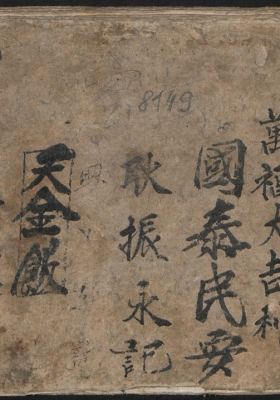 萬福大吉利
國泰民安
耿振永記
8149
天金飯